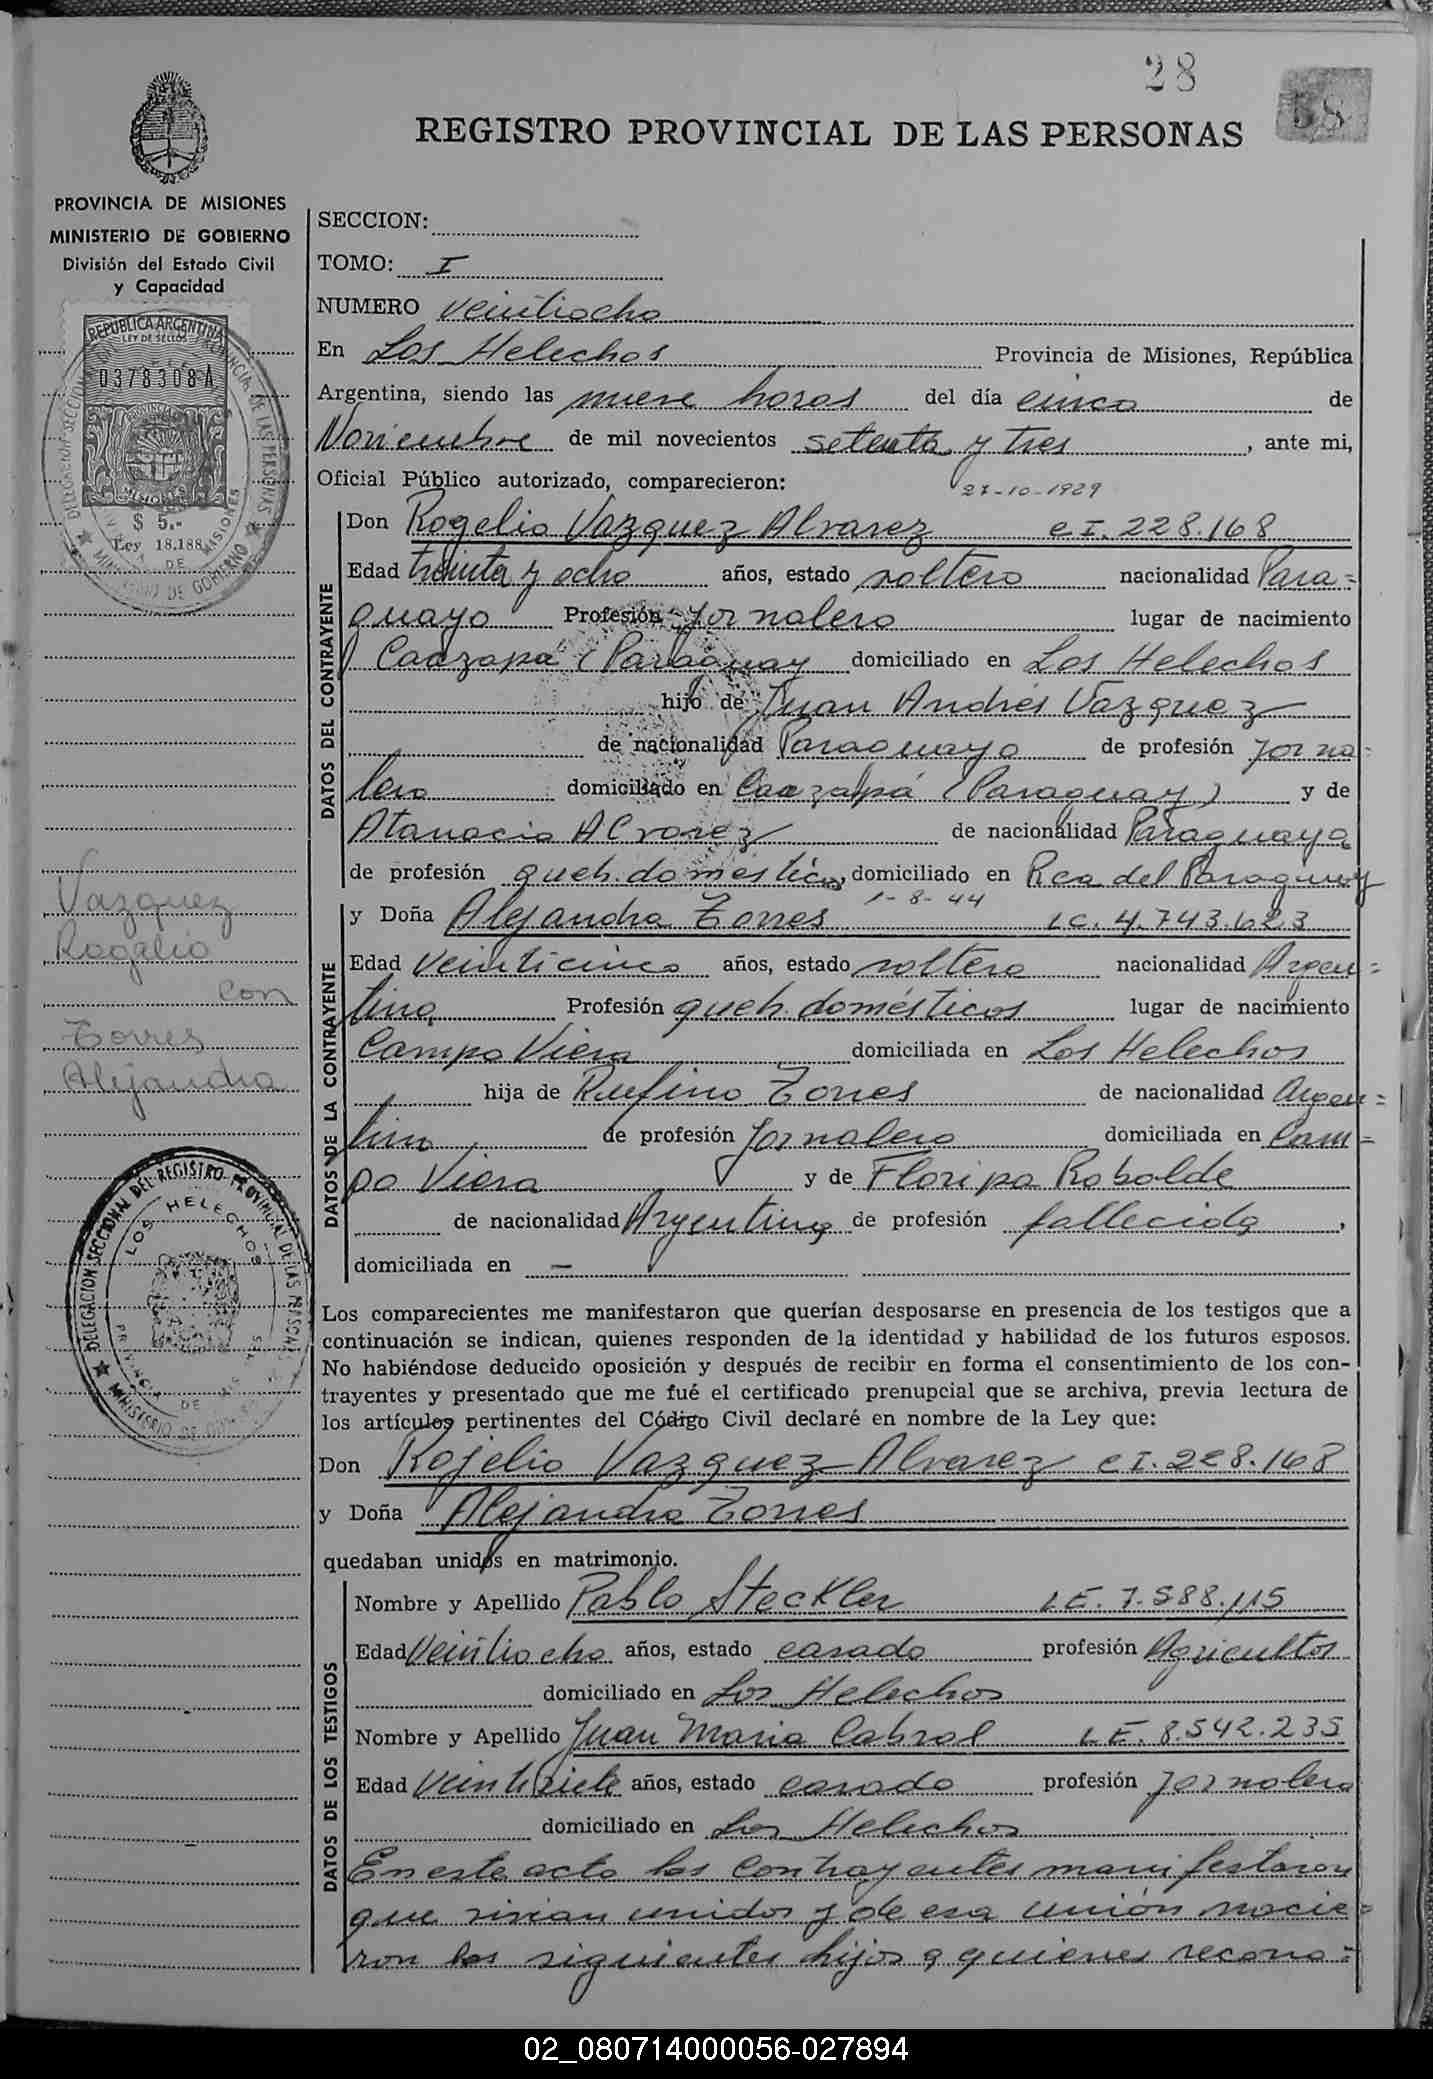 28
58
REGISTRO PROVINCIAL DE LAS PERSONAS
PROVINCIA DE MISIONES
MINISTERIO DE GOBIERNO
División del Estado Civil
y Capacidad
REPUBLICA ARGENTINA
LEY DE SELLOS
0378308 A
MISIONES
$ 5.-
Ley 18.188
SECCION:
TOMO: I
NUMERO veintiocho
En Los Helechos Provincia de Misiones, República
Argentina, siendo las nueve horas del día cinco de
Noviembre de mil novecientos setenta y tres, ante mi,
Oficial Público autorizado, comparecieron:
27-10-1929
DATOS DEL CONTRAYENTE
Don Rogelio Vazquez Alvarez C I. 228.168
Edad treinta y ocho años, estado soltero nacionalidad Para=
guayo Profesión Jornalero lugar de nacimiento
Caazapá (Paraguay domiciliado en Los Helechos
hijo de Juan Andrés Vazquez
de nacionalidad Paraguayo de profesión Jorna=
lero domiciliado en Caazapá (Paraguay) y de
Atanacia Alvarez de nacionalidad Paraguaya
de profesión queh. domésticos, domiciliado en Rca del Paraguay
1-8-44
DATOS DE LA CONTRAYENTE
y Doña Alejandra Torres LC. 4.743.623
Edad Veinticinco años, estado soltera nacionalidad Argen=
tina Profesión queh. domésticos lugar de nacimiento
Campo Viera domiciliada en Los Helechos
hija de Rufino Torres de nacionalidad Argen=
tino, de profesión Jornalero domiciliada en Cam=
po Viera y de Floripa Robalde
de nacionalidad Argentina de profesión fallecida,
domiciliada en —
Vazquez
Rogelio
con
Torres
Alejandra
DELEGACION SECCIONAL DEL REGISTRO PROVINCIAL DE LAS PERSONAS
LOS HELECHOS
PROVINCIA DE MISIONES
MINISTERIO DE GOBIERNO
Los comparecientes me manifestaron que querían desposarse en presencia de los testigos que a
continuación se indican, quienes responden de la identidad y habilidad de los futuros esposos.
No habiéndose deducido oposición y después de recibir en forma el consentimiento de los con-
trayentes y presentado que me fué el certificado prenupcial que se archiva, previa lectura de
los artículos pertinentes del Código Civil declaré en nombre de la Ley que:
Don Rojelio Vazquez Alvarez C I. 228.168
y Doña Alejandra Torres
quedaban unidos en matrimonio.
DATOS DE LOS TESTIGOS
Nombre y Apellido Pablo Steckler L E. 7.588.115
Edad Veintiocho años, estado casado profesión Agricultor
domiciliado en Los Helechos
Nombre y Apellido Juan Maria Cabral L E. 8.542.235
Edad Veintisiete años, estado casado profesión Jornalero
domiciliado en Los Helechos
En este acto los contrayentes manifestaron
que vivian unidos y de esa unión nacie=
ron los siguientes hijos a quienes recono=
02_080714000056-027894